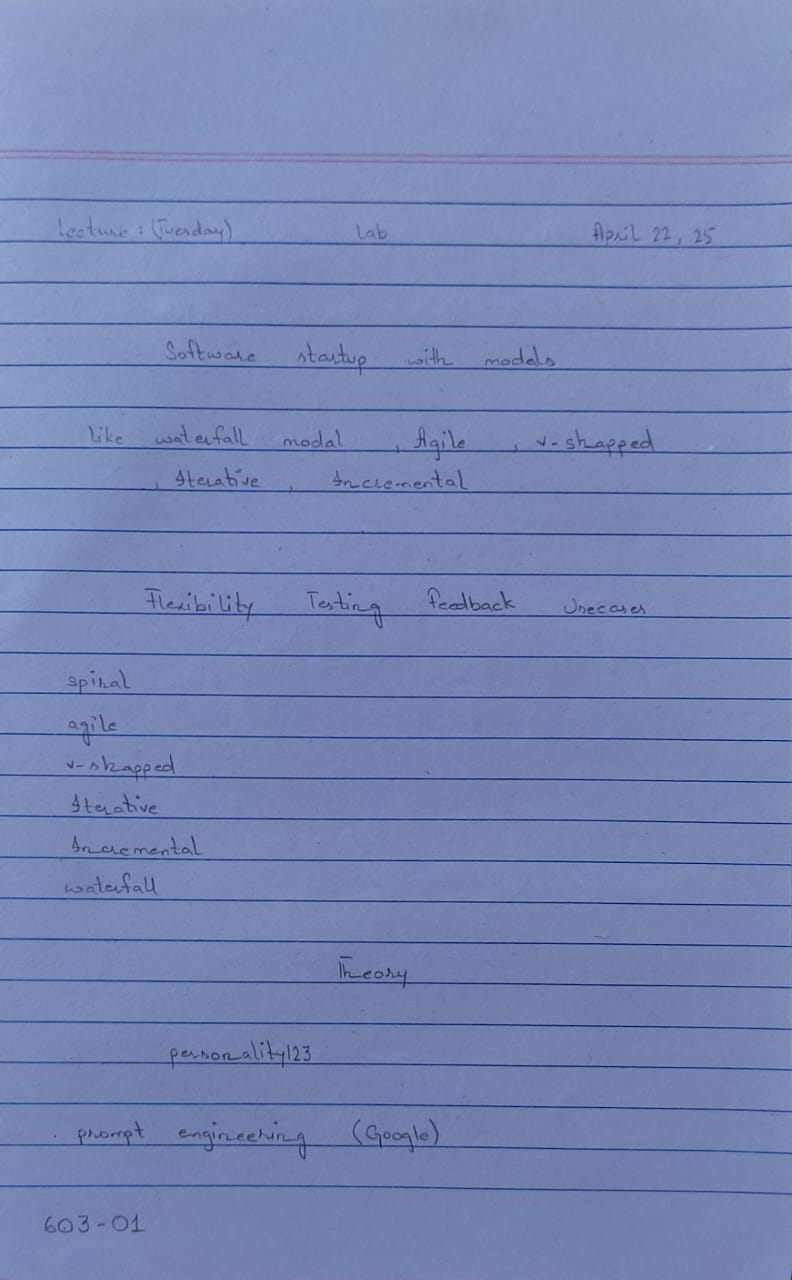 Lecture : (Tuesday) Lab April 22, 25
Software startup with models
like waterfall modal , Agile , v-shapped
, Iterative , Incremental
Flexibility Testing feedback Usecases
spiral
agile
v-shapped
Iterative
Incremental
waterfall
Theory
personality123
prompt engineering (Google)
603-01